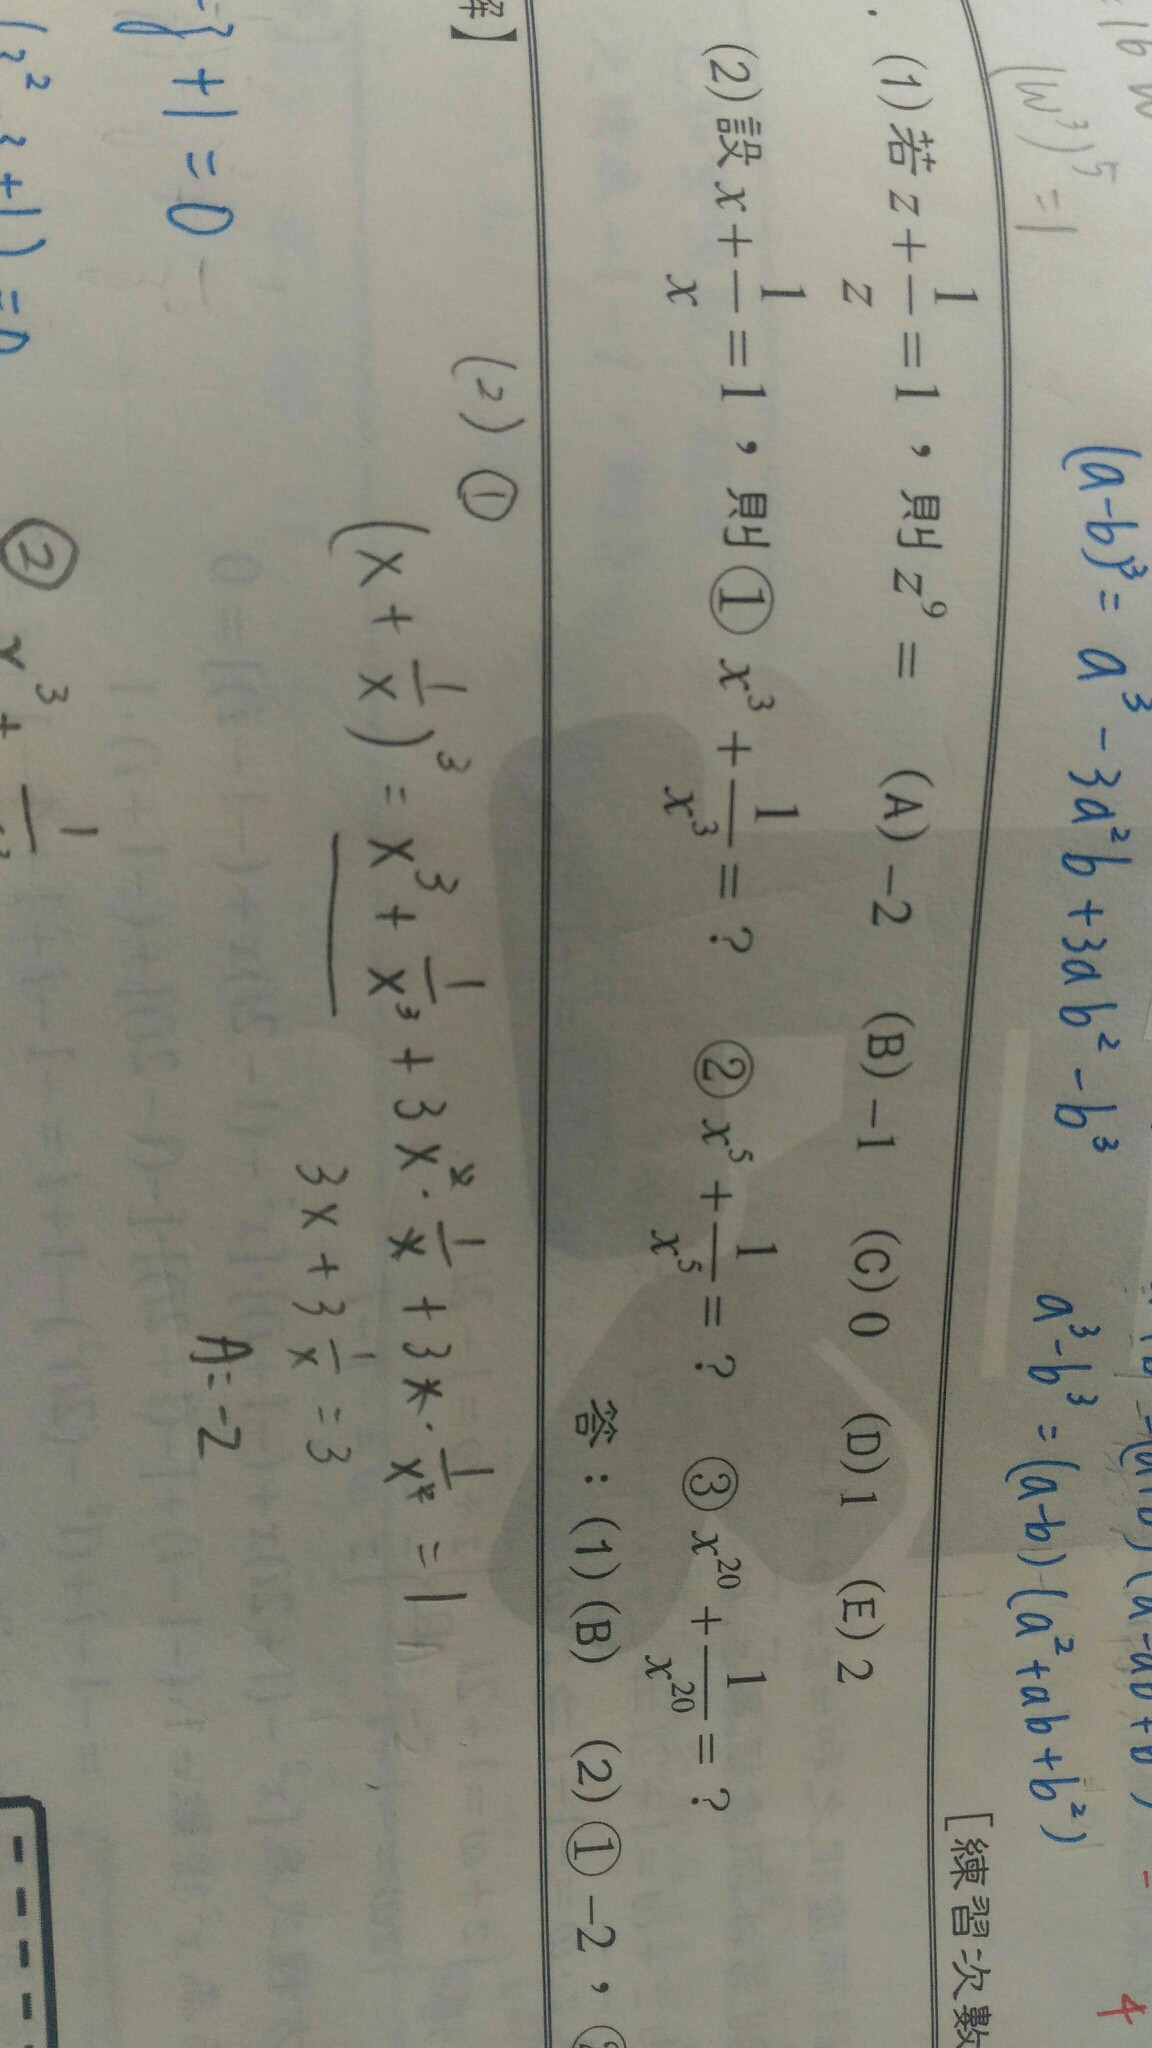 (w³)⁵ = 1
(a-b)³ = a³ - 3a²b + 3ab² - b³
a³-b³ = (a-b)(a²+ab+b²)
4
[練習次數
(1)若 z + 1/z = 1,則 z⁹ = (A) -2 (B) -1 (C) 0 (D) 1 (E) 2
(2)設 x + 1/x = 1,則① x³ + 1/x³ = ? ② x⁵ + 1/x⁵ = ? ③ x²⁰ + 1/x²⁰ = ?
答:(1)(B) (2)① -2,
解】
(2) ①
(x + 1/x)³ = x³ + 1/x³ + 3x² · 1/x + 3x · 1/x² = 1
3x + 3 1/x = 3
A = -2
+1 = 0
+1) = 0
② x³ + 1